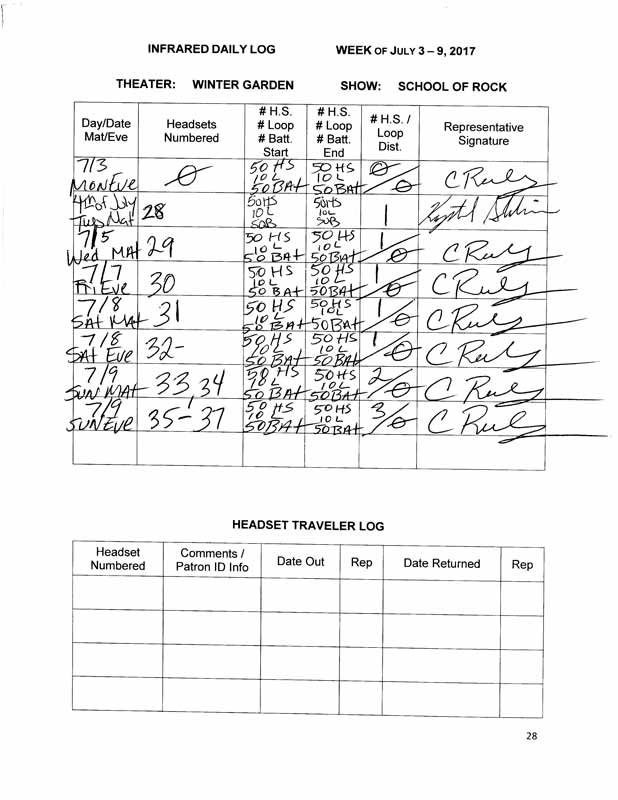 INFRARED DAILY LOG WEEK OF JULY 3 – 9, 2017
THEATER: WINTER GARDEN SHOW: SCHOOL OF ROCK
Day/Date Mat/Eve Headsets Numbered # H.S. # Loop # Batt. Start # H.S. # Loop # Batt. End # H.S. / Loop Dist. Representative Signature
7/3 Mon Eve 0 50 HS 10 L 50 BAt 50 HS 10 L 50 BAt 0/0
4th of July Tues Mat 28 50HS 10 L 50B 50HS 10L 50B 1
7/5 Wed MAt 29 50 HS 10 L 50 BAt 50 HS 10 L 50 BAt 1/0
7/7 Fri Eve 30 50 HS 10 L 50 BAt 50 HS 10 L 50BAt 1/0
7/8 SAt MAt 31 50 HS 10 L 50 BAt 50 HS 10L 50BAt 1/0
7/8 SAt Eve 32- 50 HS 10 L 50 BAt 50 HS 10 L 50BAt 1/0
7/9 SUN MAt 33, 34 50 HS 10 L 50 BAt 50 HS 10 L 50BAt 2/0
7/9 SUN Eve 35-37 50 HS 10 L 50BAt 50 HS 10 L 50BAt 3/0
HEADSET TRAVELER LOG
Headset Numbered Comments / Patron ID Info Date Out Rep Date Returned Rep
28